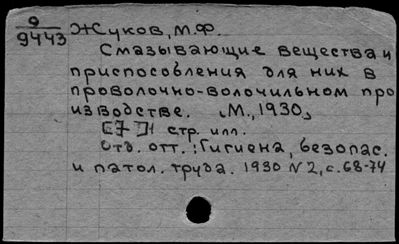 9
9443
Жуков, М.Ф.
Смазывающие вещества и
приспособления для них в
проволочно-волочильном про
изводстве. М., 1930,
[7] стр. илл.
Отд. отт.: Гигиена, безопас.
и патол. труда. 1930 N2, с. 68-74